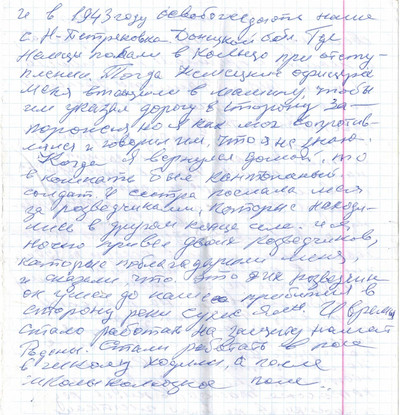 и в 1943 году освобождают наше
с. Н-Петриковка Донецкой обл. Где
Немцы попали в кольцо при отсту-
плении. Тогда Немецкие офицера
меня втащили в машину, чтобы
им указал дорогу в сторону За-
порожья но я как мог сопротив-
лялся и говорил им, что я не знаю.
Когда я вернулся домой, то
в комнате был контуженый
солдат и сестра послала меня
за разведчиками, которые находи-
лись в другом конце села. и я
ночью привел двоих разведчиков,
которые поблагодарили меня,
и сказали что. Это
он ушел до нашего в
сторону реки Сухие Ялы. И время
стало работать на защиту нашей
Родины. Стали работать в поле
в школу ходили, а после
школы колхозное поле.